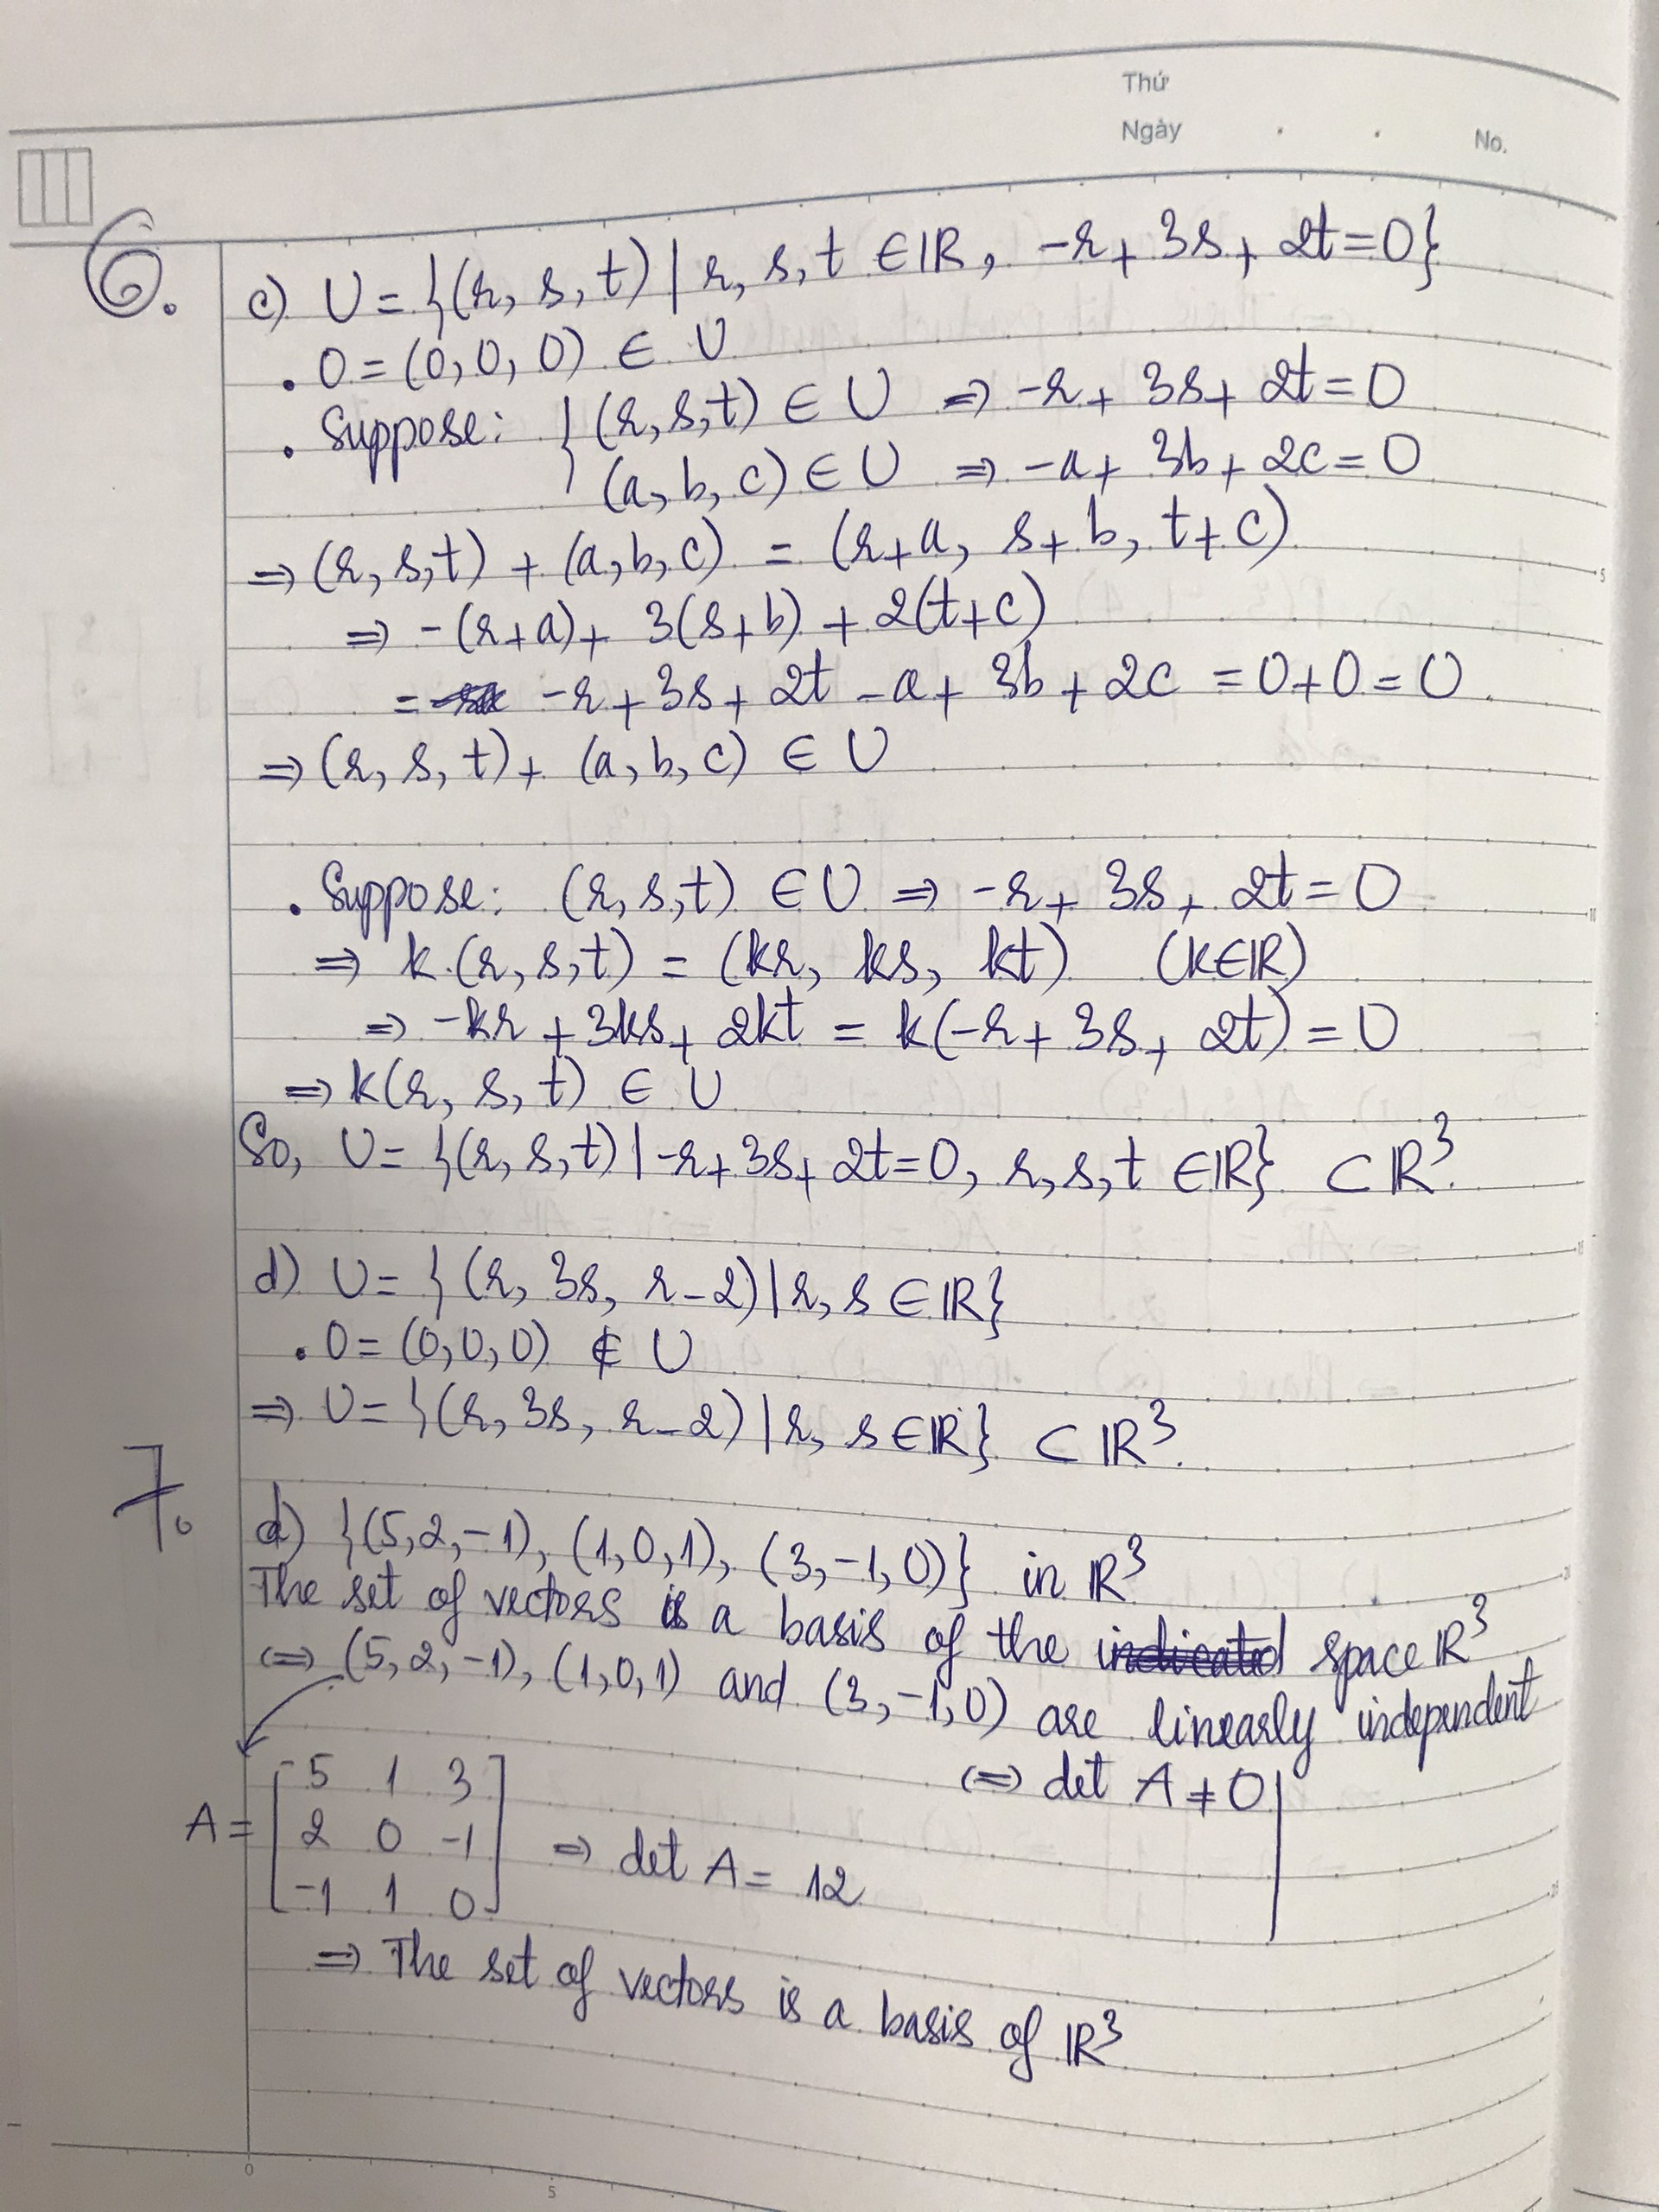 Thứ
Ngày . .
No.
6.
c) U = {(r, s, t) | r, s, t ∈ ℝ, -r + 3s + 2t = 0}
. 0 = (0, 0, 0) ∈ U
. Suppose: { (r, s, t) ∈ U ⇒ -r + 3s + 2t = 0
(a, b, c) ∈ U ⇒ -a + 3b + 2c = 0
⇒ (r, s, t) + (a, b, c) = (r + a, s + b, t + c)
⇒ -(r + a) + 3(s + b) + 2(t + c)
= -r + 3s + 2t - a + 3b + 2c = 0 + 0 = 0.
⇒ (r, s, t) + (a, b, c) ∈ U
. Suppose: (r, s, t) ∈ U ⇒ -r + 3s + 2t = 0
⇒ k.(r, s, t) = (kr, ks, kt) (k ∈ ℝ)
⇒ -kr + 3ks + 2kt = k(-r + 3s + 2t) = 0
⇒ k(r, s, t) ∈ U
So, U = {(r, s, t) | -r + 3s + 2t = 0, r, s, t ∈ ℝ} ⊂ ℝ³.
d) U = {(r, 3s, r - 2) | r, s ∈ ℝ}
. 0 = (0, 0, 0) ∉ U
⇒ U = {(r, 3s, r - 2) | r, s ∈ ℝ} ⊂ ℝ³.
7.
d) {(5, 2, -1), (1, 0, 1), (3, -1, 0)} in ℝ³
The set of vectors is a basis of the indicated space ℝ³
⇔ (5, 2, -1), (1, 0, 1) and (3, -1, 0) are linearly independent
⇔ det A ≠ 0
A = [5 1 3
2 0 -1
-1 1 0] ⇒ det A = 12
⇒ The set of vectors is a basis of ℝ³
0
5
5
10
15
20
25